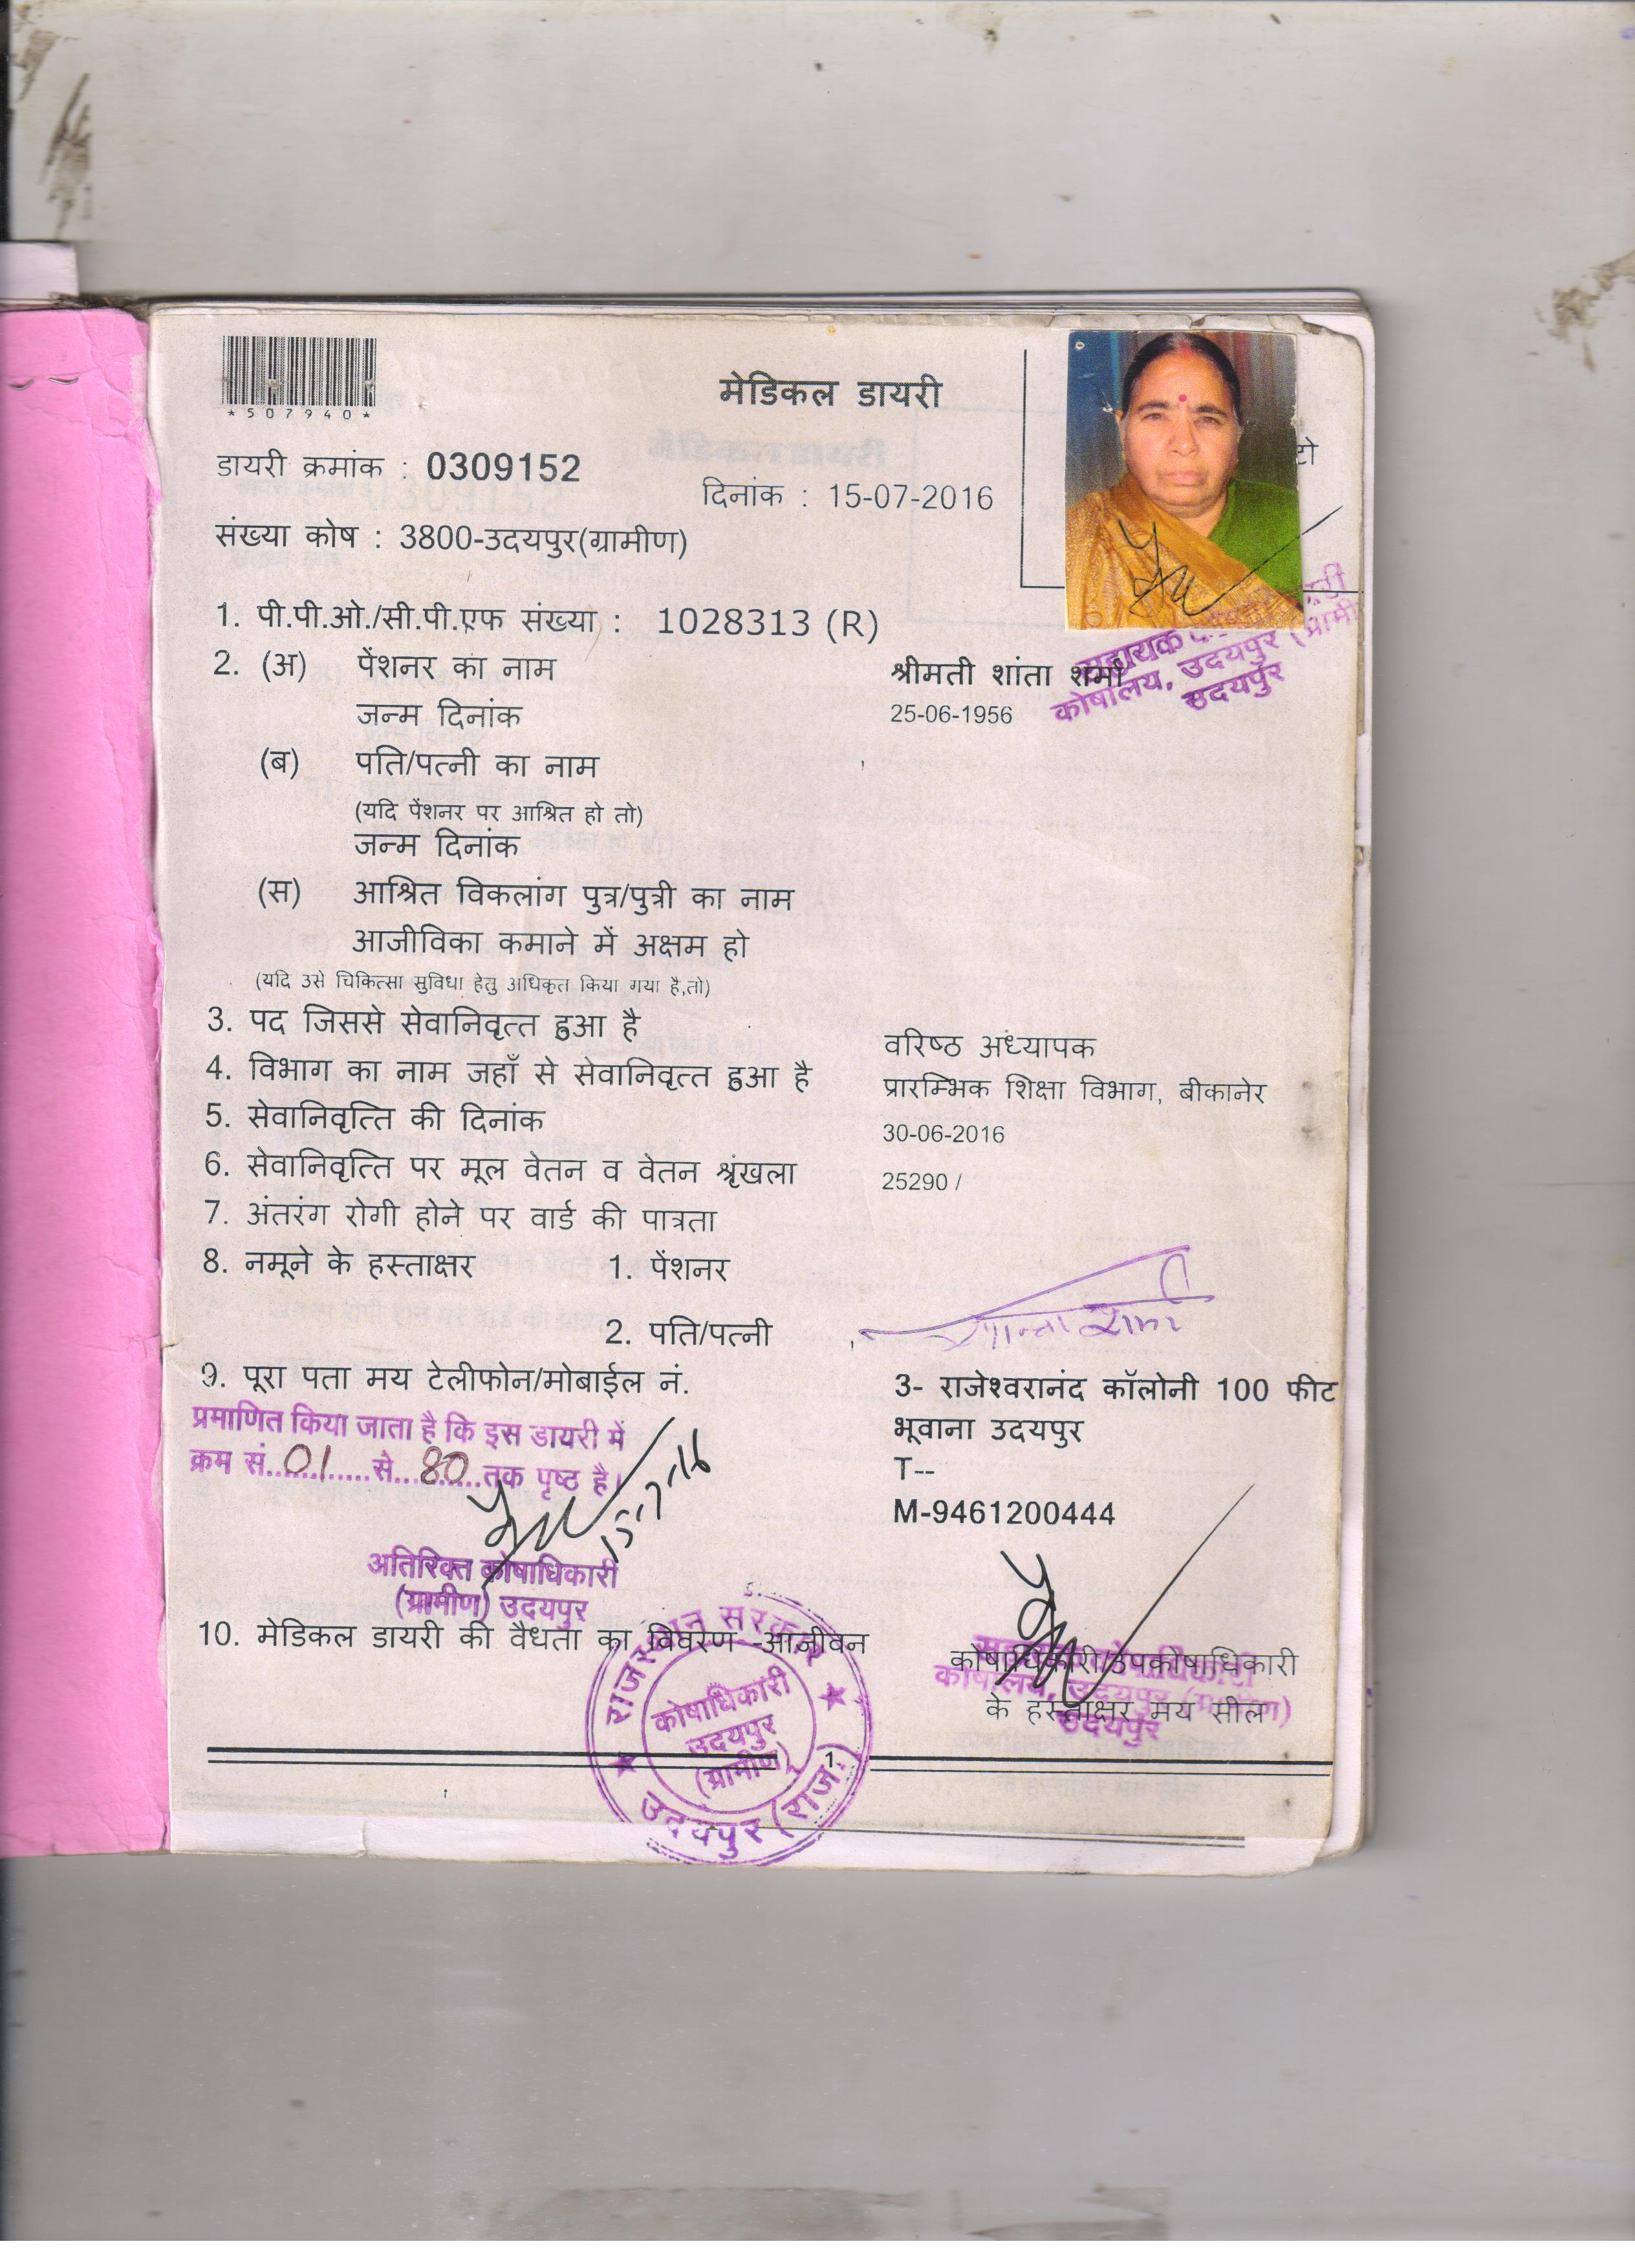 *507940*
मेडिकल डायरी
डायरी क्रमांक : 0309152
दिनांक : 15-07-2016
टो
संख्या कोष : 3800-उदयपुर(ग्रामीण)
1. पी.पी.ओ./सी.पी.एफ संख्या : 1028313 (R)
2. (अ) पेंशनर का नाम श्रीमती शांता शर्मा
सहायक
कोषालय, उदयपुर (ग्रामी
उदयपुर
जन्म दिनांक 25-06-1956
(ब) पति/पत्नी का नाम
(यदि पेंशनर पर आश्रित हो तो)
जन्म दिनांक
(स) आश्रित विकलांग पुत्र/पुत्री का नाम
आजीविका कमाने में अक्षम हो
(यदि उसे चिकित्सा सुविधा हेतु अधिकृत किया गया है,तो)
3. पद जिससे सेवानिवृत्त हुआ है वरिष्ठ अध्यापक
4. विभाग का नाम जहाँ से सेवानिवृत्त हुआ है प्रारम्भिक शिक्षा विभाग, बीकानेर
5. सेवानिवृत्ति की दिनांक 30-06-2016
6. सेवानिवृत्ति पर मूल वेतन व वेतन श्रृंखला 25290 /
7. अंतरंग रोगी होने पर वार्ड की पात्रता
8. नमूने के हस्ताक्षर 1. पेंशनर
शान्ता शर्मा
2. पति/पत्नी
9. पूरा पता मय टेलीफोन/मोबाईल नं. 3- राजेश्वरानंद कॉलोनी 100 फीट
भूवाना उदयपुर
T--
M-9461200444
प्रमाणित किया जाता है कि इस डायरी में
क्रम सं. 01 से 80 तक पृष्ठ है।
15-7-16
अतिरिक्त कोषाधिकारी
(ग्रामीण) उदयपुर
10. मेडिकल डायरी की वैधता का विवरण -आजीवन
कोषाधिकारी/उपकोषाधिकारी
के हस्ताक्षर मय सील
कोषालय, उदयपुर (ग्रामीण)
उदयपुर
राजस्थान सरकार
कोषाधिकारी
उदयपुर
(ग्रामीण)
उदयपुर (राज.)
1